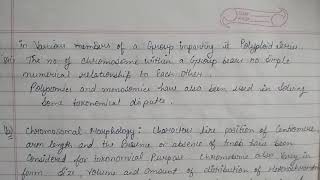 in Various members of a Group imparing it Polyploid series.
The no of chromosome within a Group bears no simple
numerical relationship to Each other.
Polysomics and monosomics have also been used in Solving
Some taxonomical dispute.
(b) Chromosomal Morphology: Characters like position of Centromere,
arm length and the Presence or absence of have been
Considered for taxonomical Purpose Chromosome also vary in
form Size, Volume and Amount of distribution of Heterochromatin